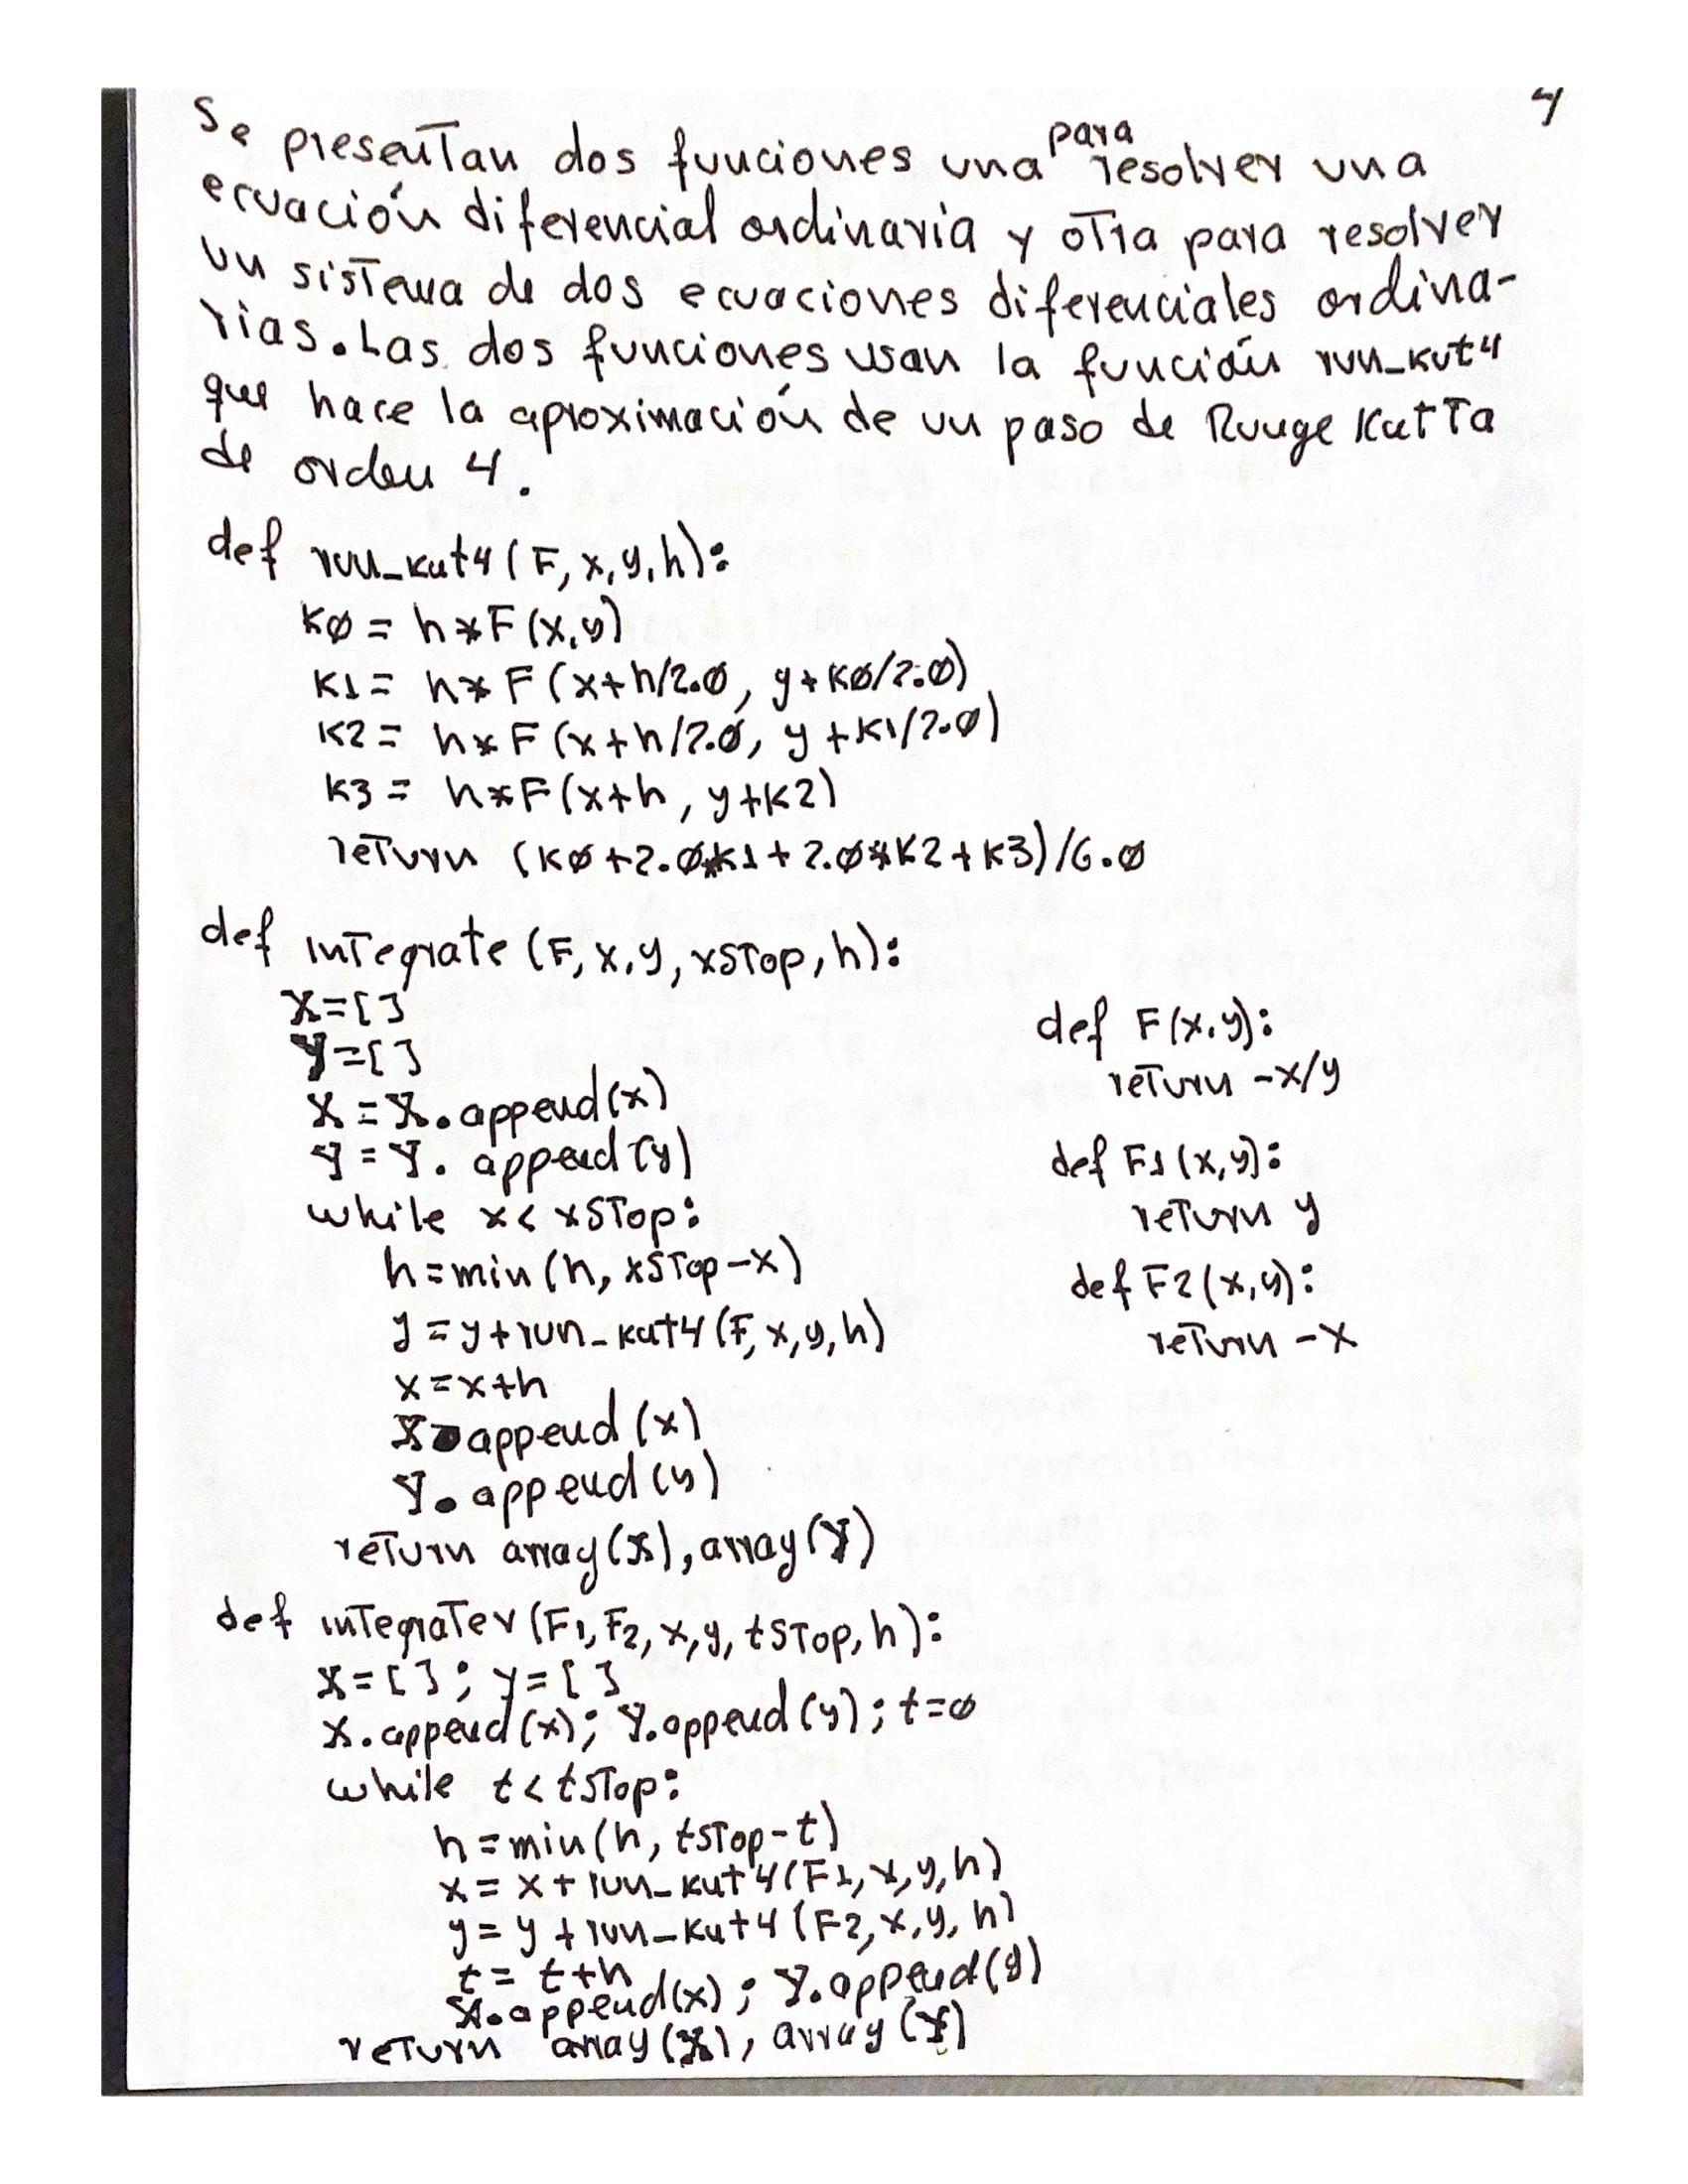 4
Se presentan dos funciones una para resolver una
ecuación diferencial ordinaria y otra para resolver
un sistema de dos ecuaciones diferenciales ordina-
rias. Las dos funciones usan la función run_kut4
que hace la aproximación de un paso de Runge Kutta
de orden 4.
def run_kut4(F,x,y,h):
K0 = h*F(x,y)
K1 = h*F(x+h/2.0, y+K0/2.0)
K2 = h*F(x+h/2.0, y+K1/2.0)
K3 = h*F(x+h, y+K2)
return (K0+2.0*K1+2.0*K2+K3)/6.0
def integrate(F,x,y,xStop,h):
X=[]
Y=[]
X=X.append(x)
Y=Y.append(y)
while x<xStop:
h=min(h, xStop-x)
y=y+run_kut4(F,x,y,h)
x=x+h
X.append(x)
Y.append(y)
return array(X),array(Y)
def F(x,y):
return -x/y
def F1(x,y):
return y
def F2(x,y):
return -x
def integrater(F1,F2,x,y,tStop,h):
X=[]; Y=[]
X.append(x); Y.append(y); t=0
while t<tStop:
h=min(h, tStop-t)
x=x+run_kut4(F1,x,y,h)
y=y+run_kut4(F2,x,y,h)
t=t+h
X.append(x); Y.append(y)
return array(X), array(Y)